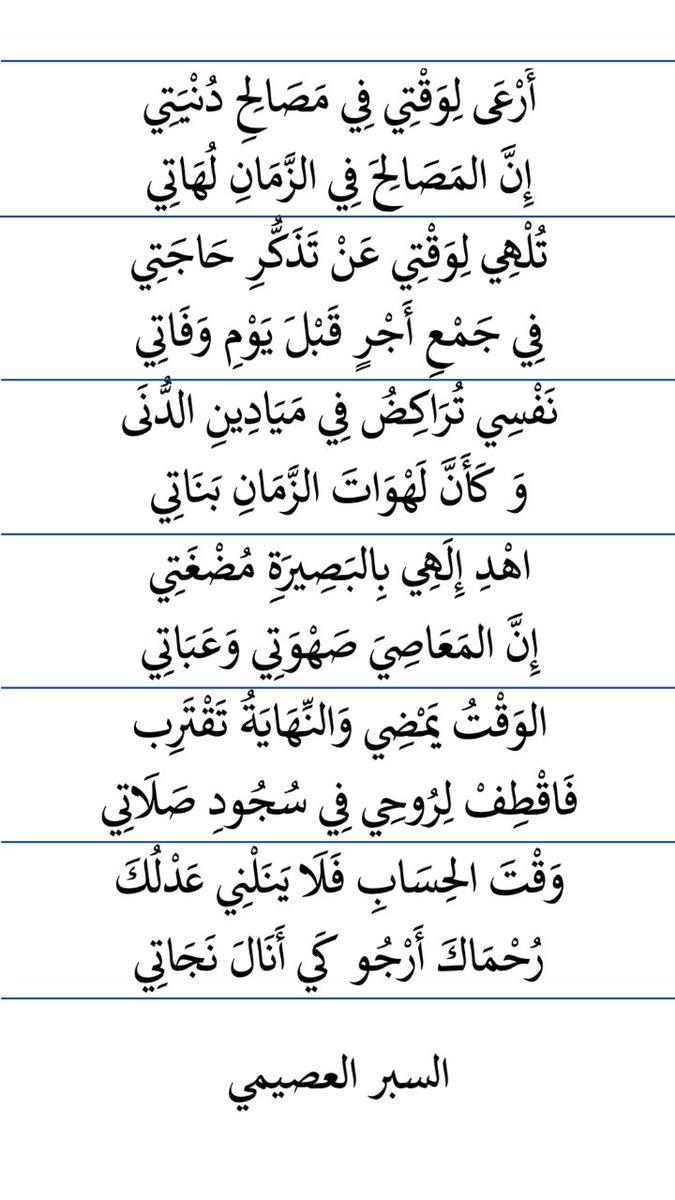 أَرْعَى لِوَقْتِي فِي مَصَالِحِ دُنْيَتِي
إِنَّ المَصَالِحَ فِي الزَّمَانِ لُهَاتِي
تُلْهِي لِوَقْتِي عَنْ تَذَكُّرِ حَاجَتِي
فِي جَمْعِ أَجْرٍ قَبْلَ يَوْمِ وَفَاتِي
نَفْسِي تُرَاكِضُ فِي مَيَادِينِ الدُّنَى
وَ كَأَنَّ لَهْوَاتَ الزَّمَانِ بَنَاتِي
اهْدِ إِلَهِي بِالبَصِيرَةِ مُضْغَتِي
إِنَّ المَعَاصِيَ صَهْوَتِي وَعَبَاتِي
الوَقْتُ يَمْضِي وَالنِّهَايَةُ تَقْتَرِب
فَاقْطِفْ لِرُوحِي فِي سُجُودِ صَلَاتِي
وَقْتَ الحِسَابِ فَلَا يَنَلْنِي عَدْلُكَ
رُحْمَاكَ أَرْجُو كَي أَنَالَ نَجَاتِي
السبر العصيمي